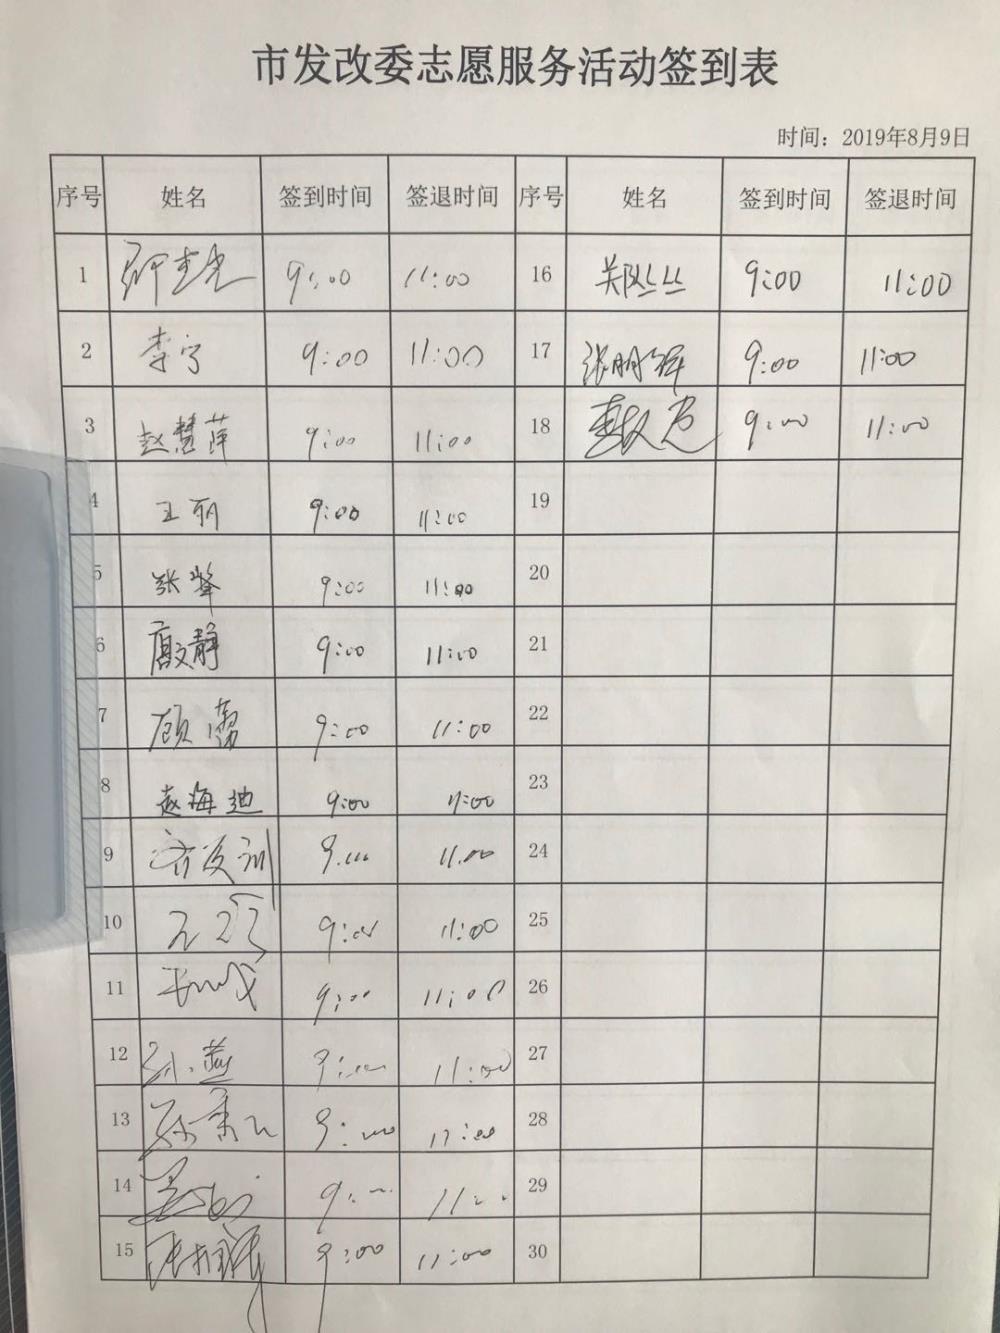 市发改委志愿服务活动签到表
时间：2019年8月9日
序号 姓名 签到时间 签退时间 序号 姓名 签到时间 签退时间
1 9:00 11:00 16 郑丛丛 9:00 11:00
2 李宁 9:00 11:00 17 张明辉 9:00 11:00
3 赵慧萍 9:00 11:00 18 9:00 11:00
4 王丽 9:00 11:00 19
5 张峰 9:00 11:00 20
6 殷文静 9:00 11:00 21
7 顾 9:00 11:00 22
8 赵海迪 9:00 11:00 23
9 9:00 11:00 24
10 9:00 11:00 25
11 9:00 11:00 26
12 孙燕 9:00 11:00 27
13 9:00 11:00 28
14 9:00 11:00 29
15 9:00 11:00 30